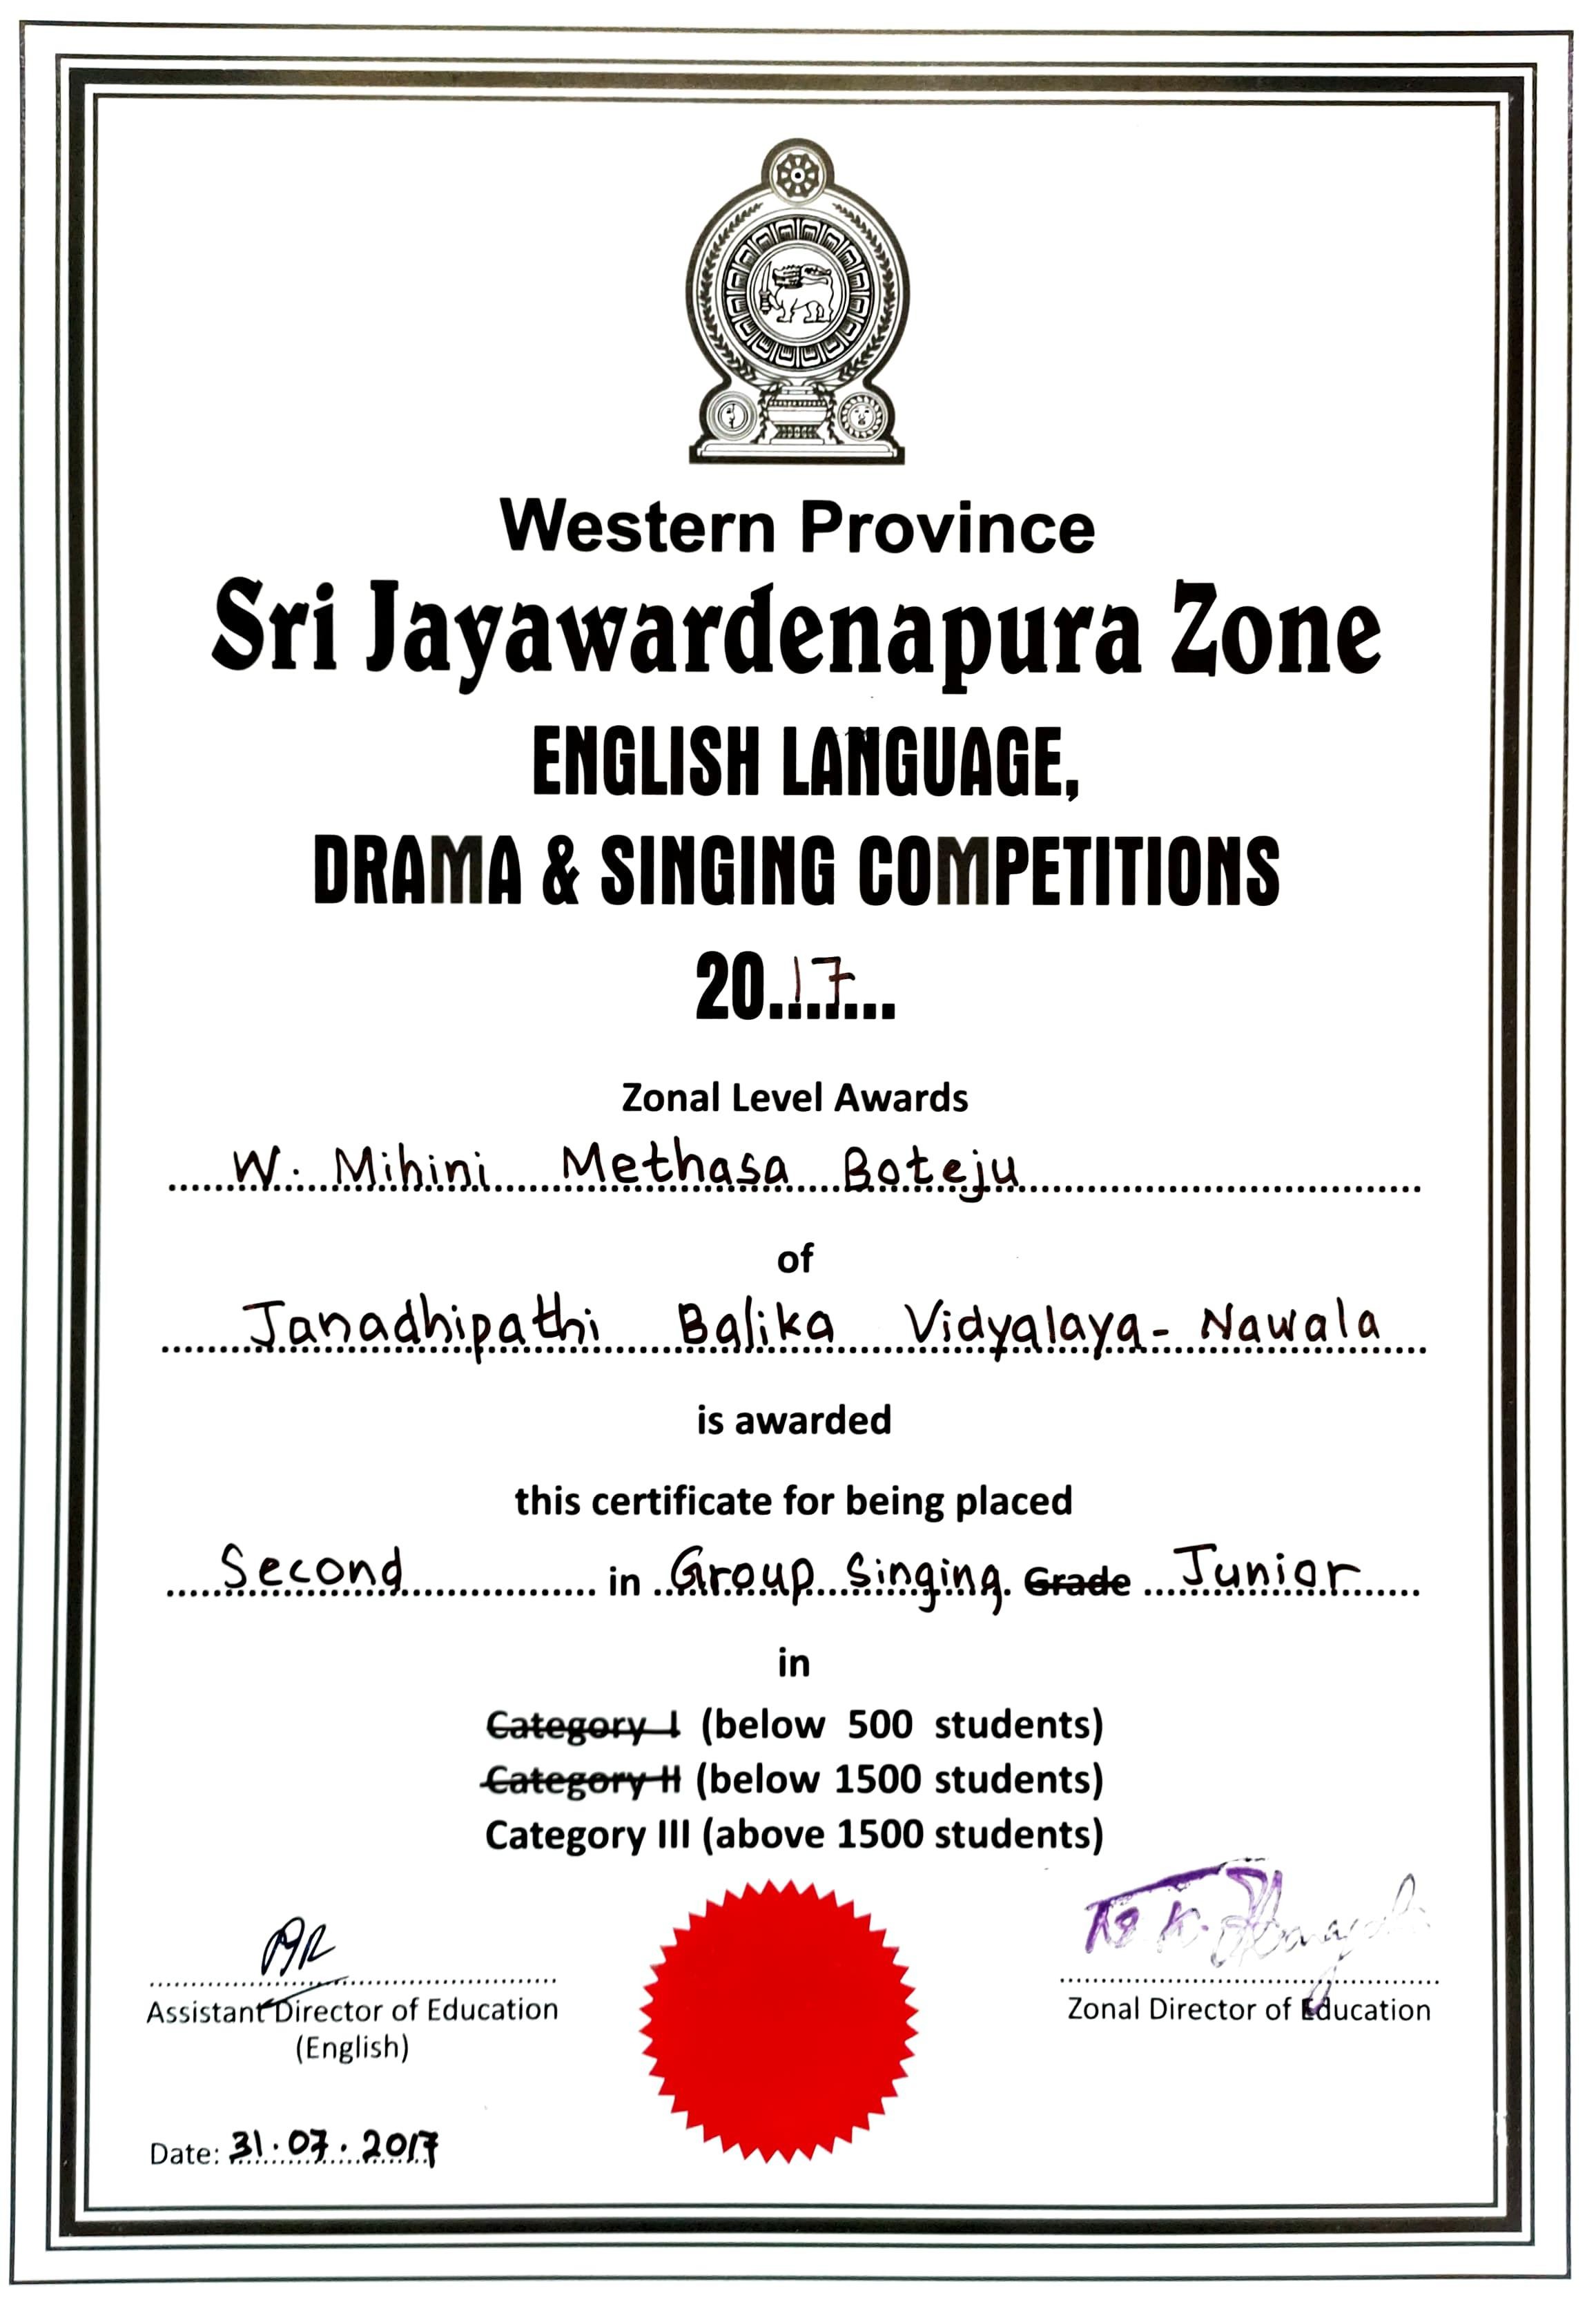 Western Province
Sri Jayawardenapura Zone
ENGLISH LANGUAGE,
DRAMA & SINGING COMPETITIONS
20...17...
Zonal Level Awards
W. Mihini Methasa Boteju
of
Janadhipathi Balika Vidyalaya - Nawala
is awarded
this certificate for being placed
Second in Group Singing Grade Junior
in
Category I (below 500 students)
Category II (below 1500 students)
Category III (above 1500 students)
Assistant Director of Education
(English)
Zonal Director of Education
Date: 31.07.2017